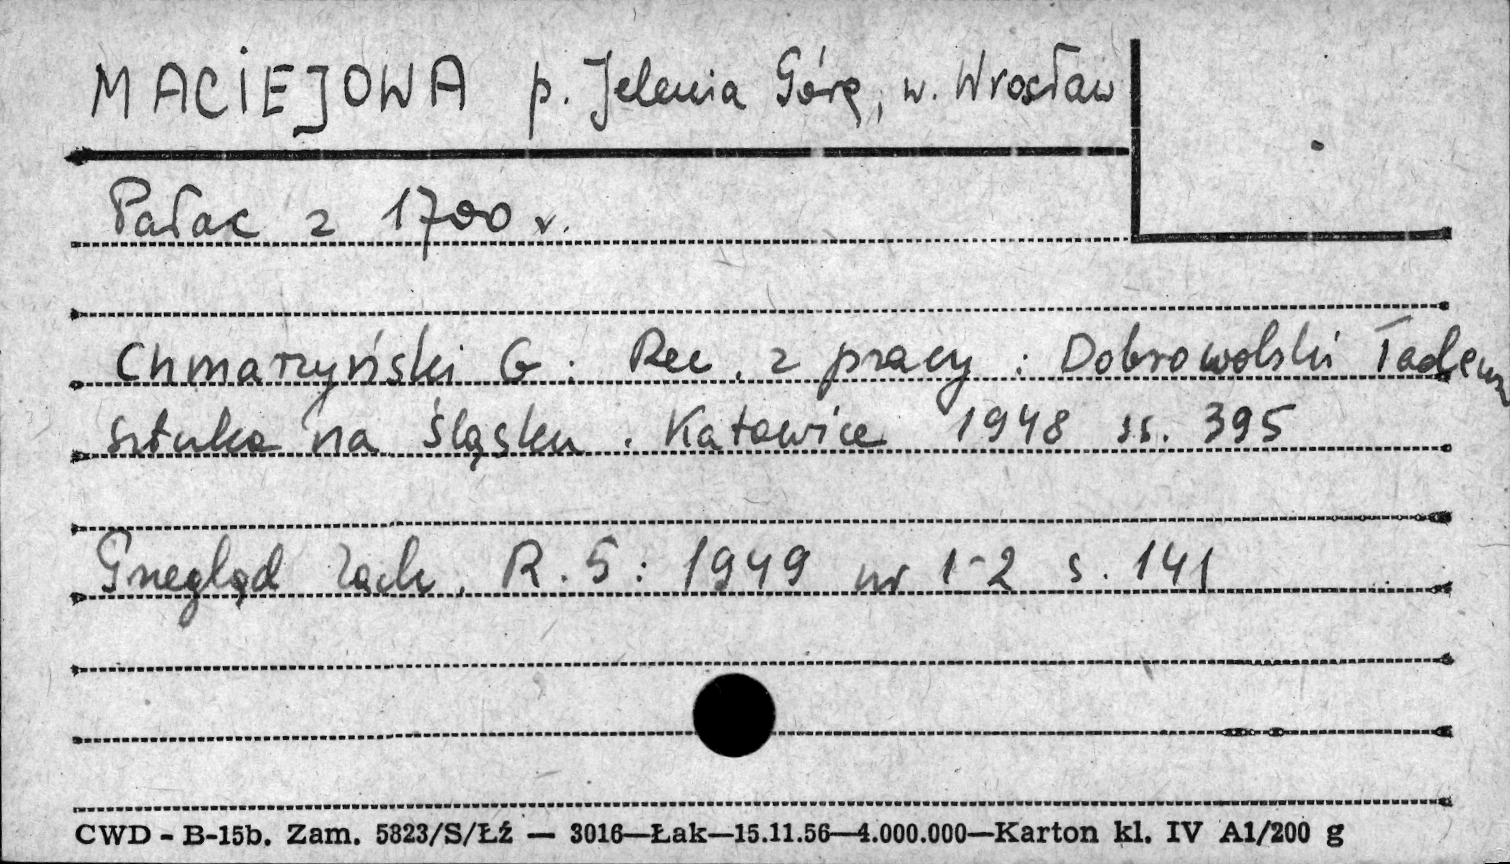 MACIEJOWA p. Jelenia Górę, w. Wrocław
Pałac z 1700 r.
Chmarzyński G: Rec. z pracy: Dobrowolski Tadeusz
Sztuka na Śląsku. Katowice 1948 ss. 395
Przegląd Zach. R. 5: 1949 nr 1-2 s. 141
CWD - B-15b. Zam. 5823/S/Łź — 3016—Łak—15.11.56—4.000.000—Karton kl. IV A1/200 g